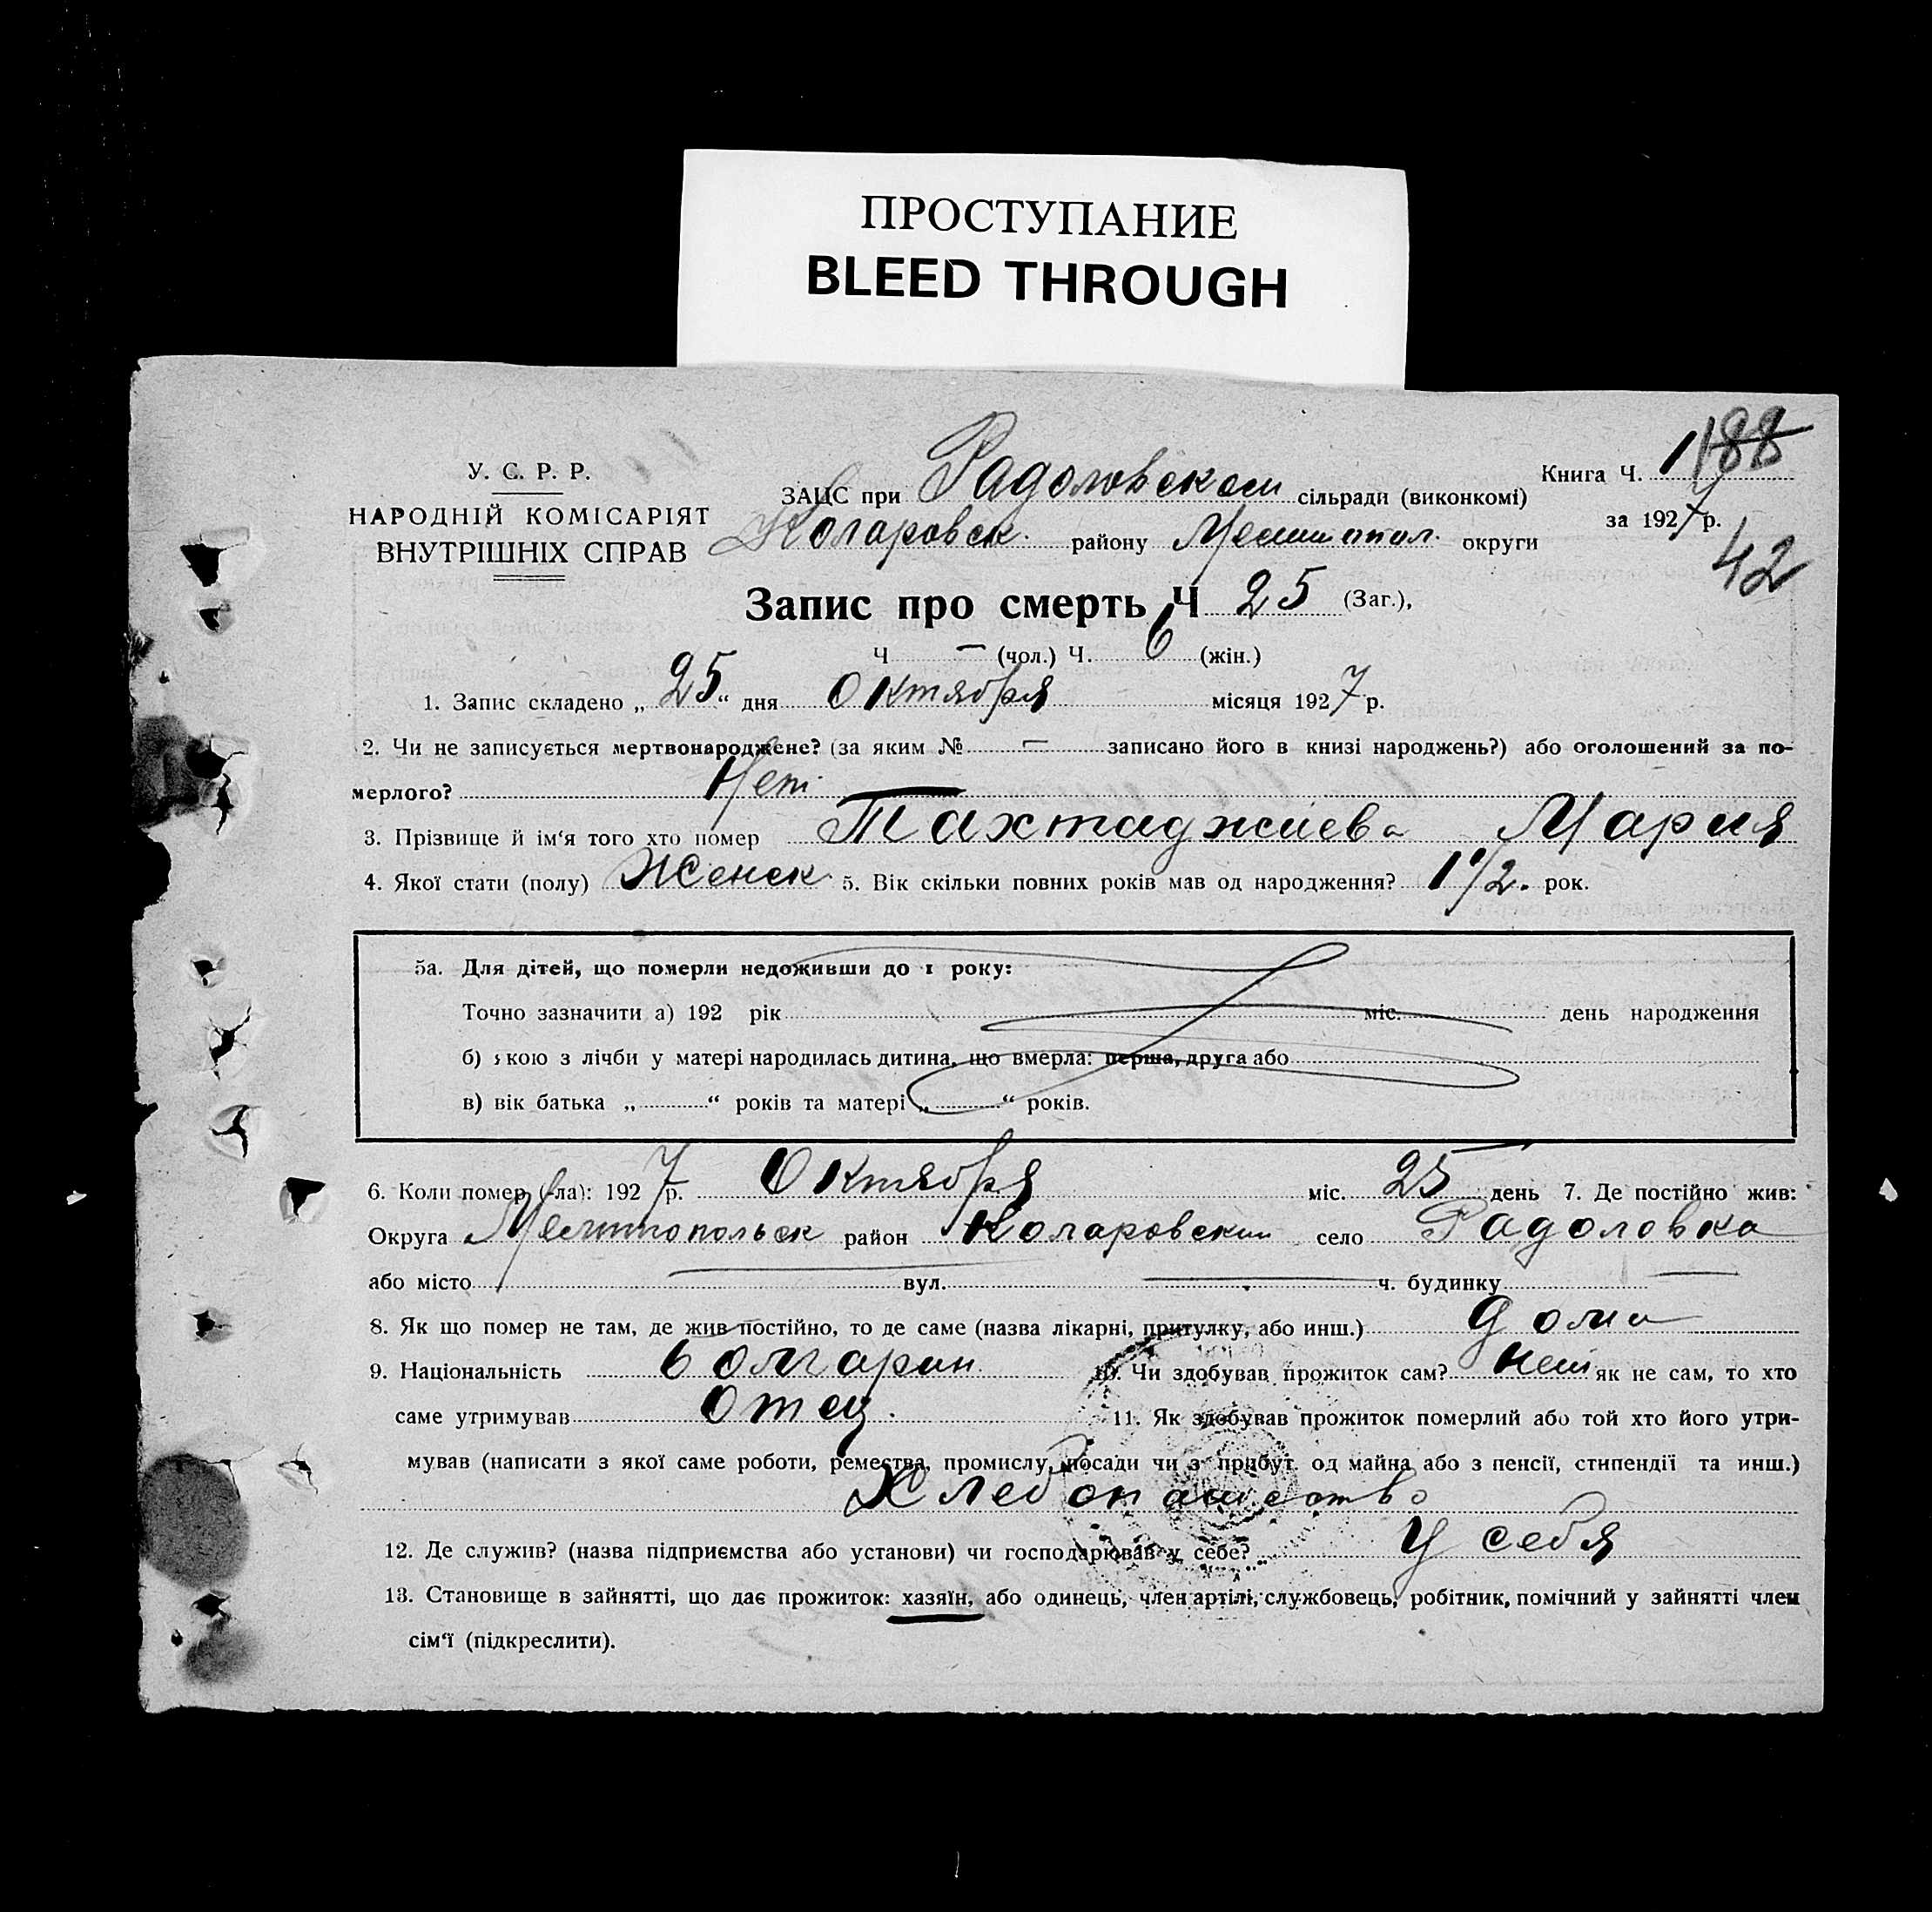 ПРОСТУПАНИЕ
BLEED THROUGH
У. С. Р. Р.
НАРОДНІЙ КОМІСАРІЯТ
ВНУТРІШНІХ СПРАВ
ЗАЦС при Радоловском сільради (виконкомі)
Коларовск. району Мелитопол. округи
Книга Ч. 1 188
за 1927 р.
42
Запис про смерть Ч 25 (Заг.),
Ч — (чол.) Ч. 6 (жін.)
1. Запис складено „25“ дня Октября місяця 1927 р.
2. Чи не записується мертвонароджене? (за яким № — записано його в книзі народжень?) або оголошений за по-
мерлого? Нет
3. Прізвище й ім‘я того хто помер Тахтаджиева Мария
4. Якої стати (полу) Женск 5. Вік скільки повних років мав од народження? 1 1/2. рок.
5а. Для дітей, що померли недоживши до 1 року:
Точно зазначити а) 192 рік міс. день народження
б) якою з лічби у матері народилась дитина, що вмерла: перша, друга або
в) вік батька „ “ років та матері „ “ років.
6. Коли помер (-ла): 1927 р. Октября міс. 25 день 7. Де постійно жив:
Округа Мелитопольск район Коларовский село Радоловка
або місто — вул. — ч. будинку —
8. Як що помер не там, де жив постійно, то де саме (назва лікарні, притулку, або инш.) дома
9. Національність болгарин 10. Чи здобував прожиток сам? Нет як не сам, то хто
саме утримував Отец. 11. Як здобував прожиток померлий або той хто його утри-
мував (написати з якої саме роботи, ремества, промислу, посади чи з прибут. од майна або з пенсії, стипендії та инш.)
Хлебопашество
12. Де служив? (назва підприємства або установи) чи господарював у себе? У себя
13. Становище в зайнятті, що дає прожиток: хазяїн, або одинець, член артілі, службовець, робітник, помічний у зайнятті член
сім‘ї (підкреслити).